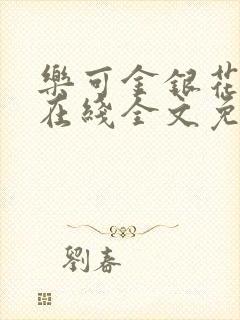 樂可金銀花
在綫全文免
劉春